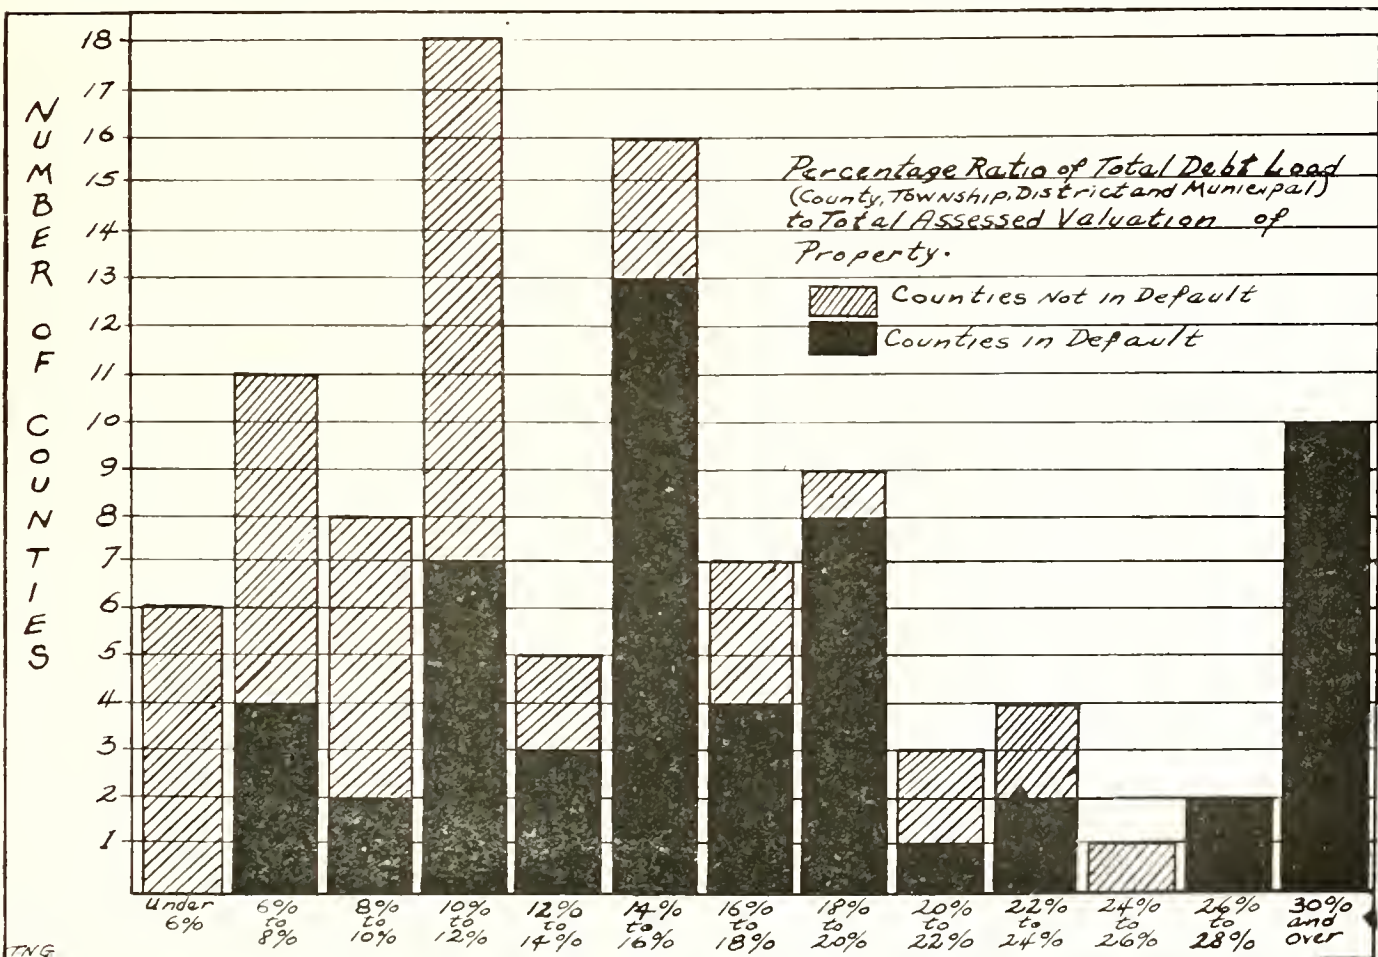 NUMBER OF COUNTIES
18
17
16
15
14
13
12
11
10
9
8
7
6
5
4
3
2
1
Percentage Ratio of Total Debt Load
(County, Township, District and Municipal)
to Total Assessed Valuation of
Property.
Counties Not in Default
Counties in Default
Under 6%
6% to 8%
8% to 10%
10% to 12%
12% to 14%
14% to 16%
16% to 18%
18% to 20%
20% to 22%
22% to 24%
24% to 26%
26% to 28%
30% and over
TNG